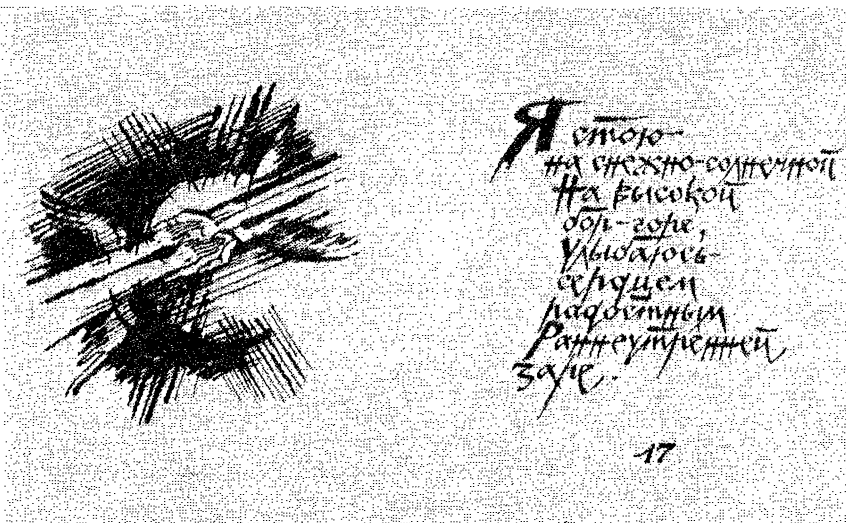 Я стою
на снежно-солнечной
На высокой
бор-горе,
Улыбаюсь
сердцем
радостным
Раннеутренней
заре.
17